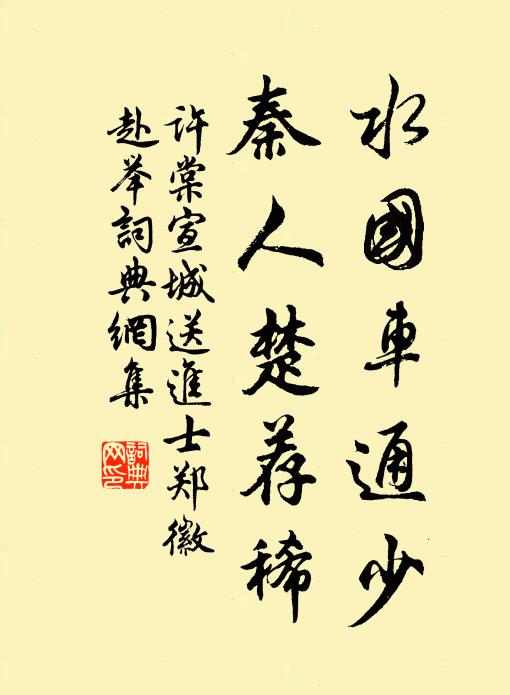 水國車通少
秦人楚荐稀
许棠宣城送進士郑徽
赴举詞典網集
詞典
网印